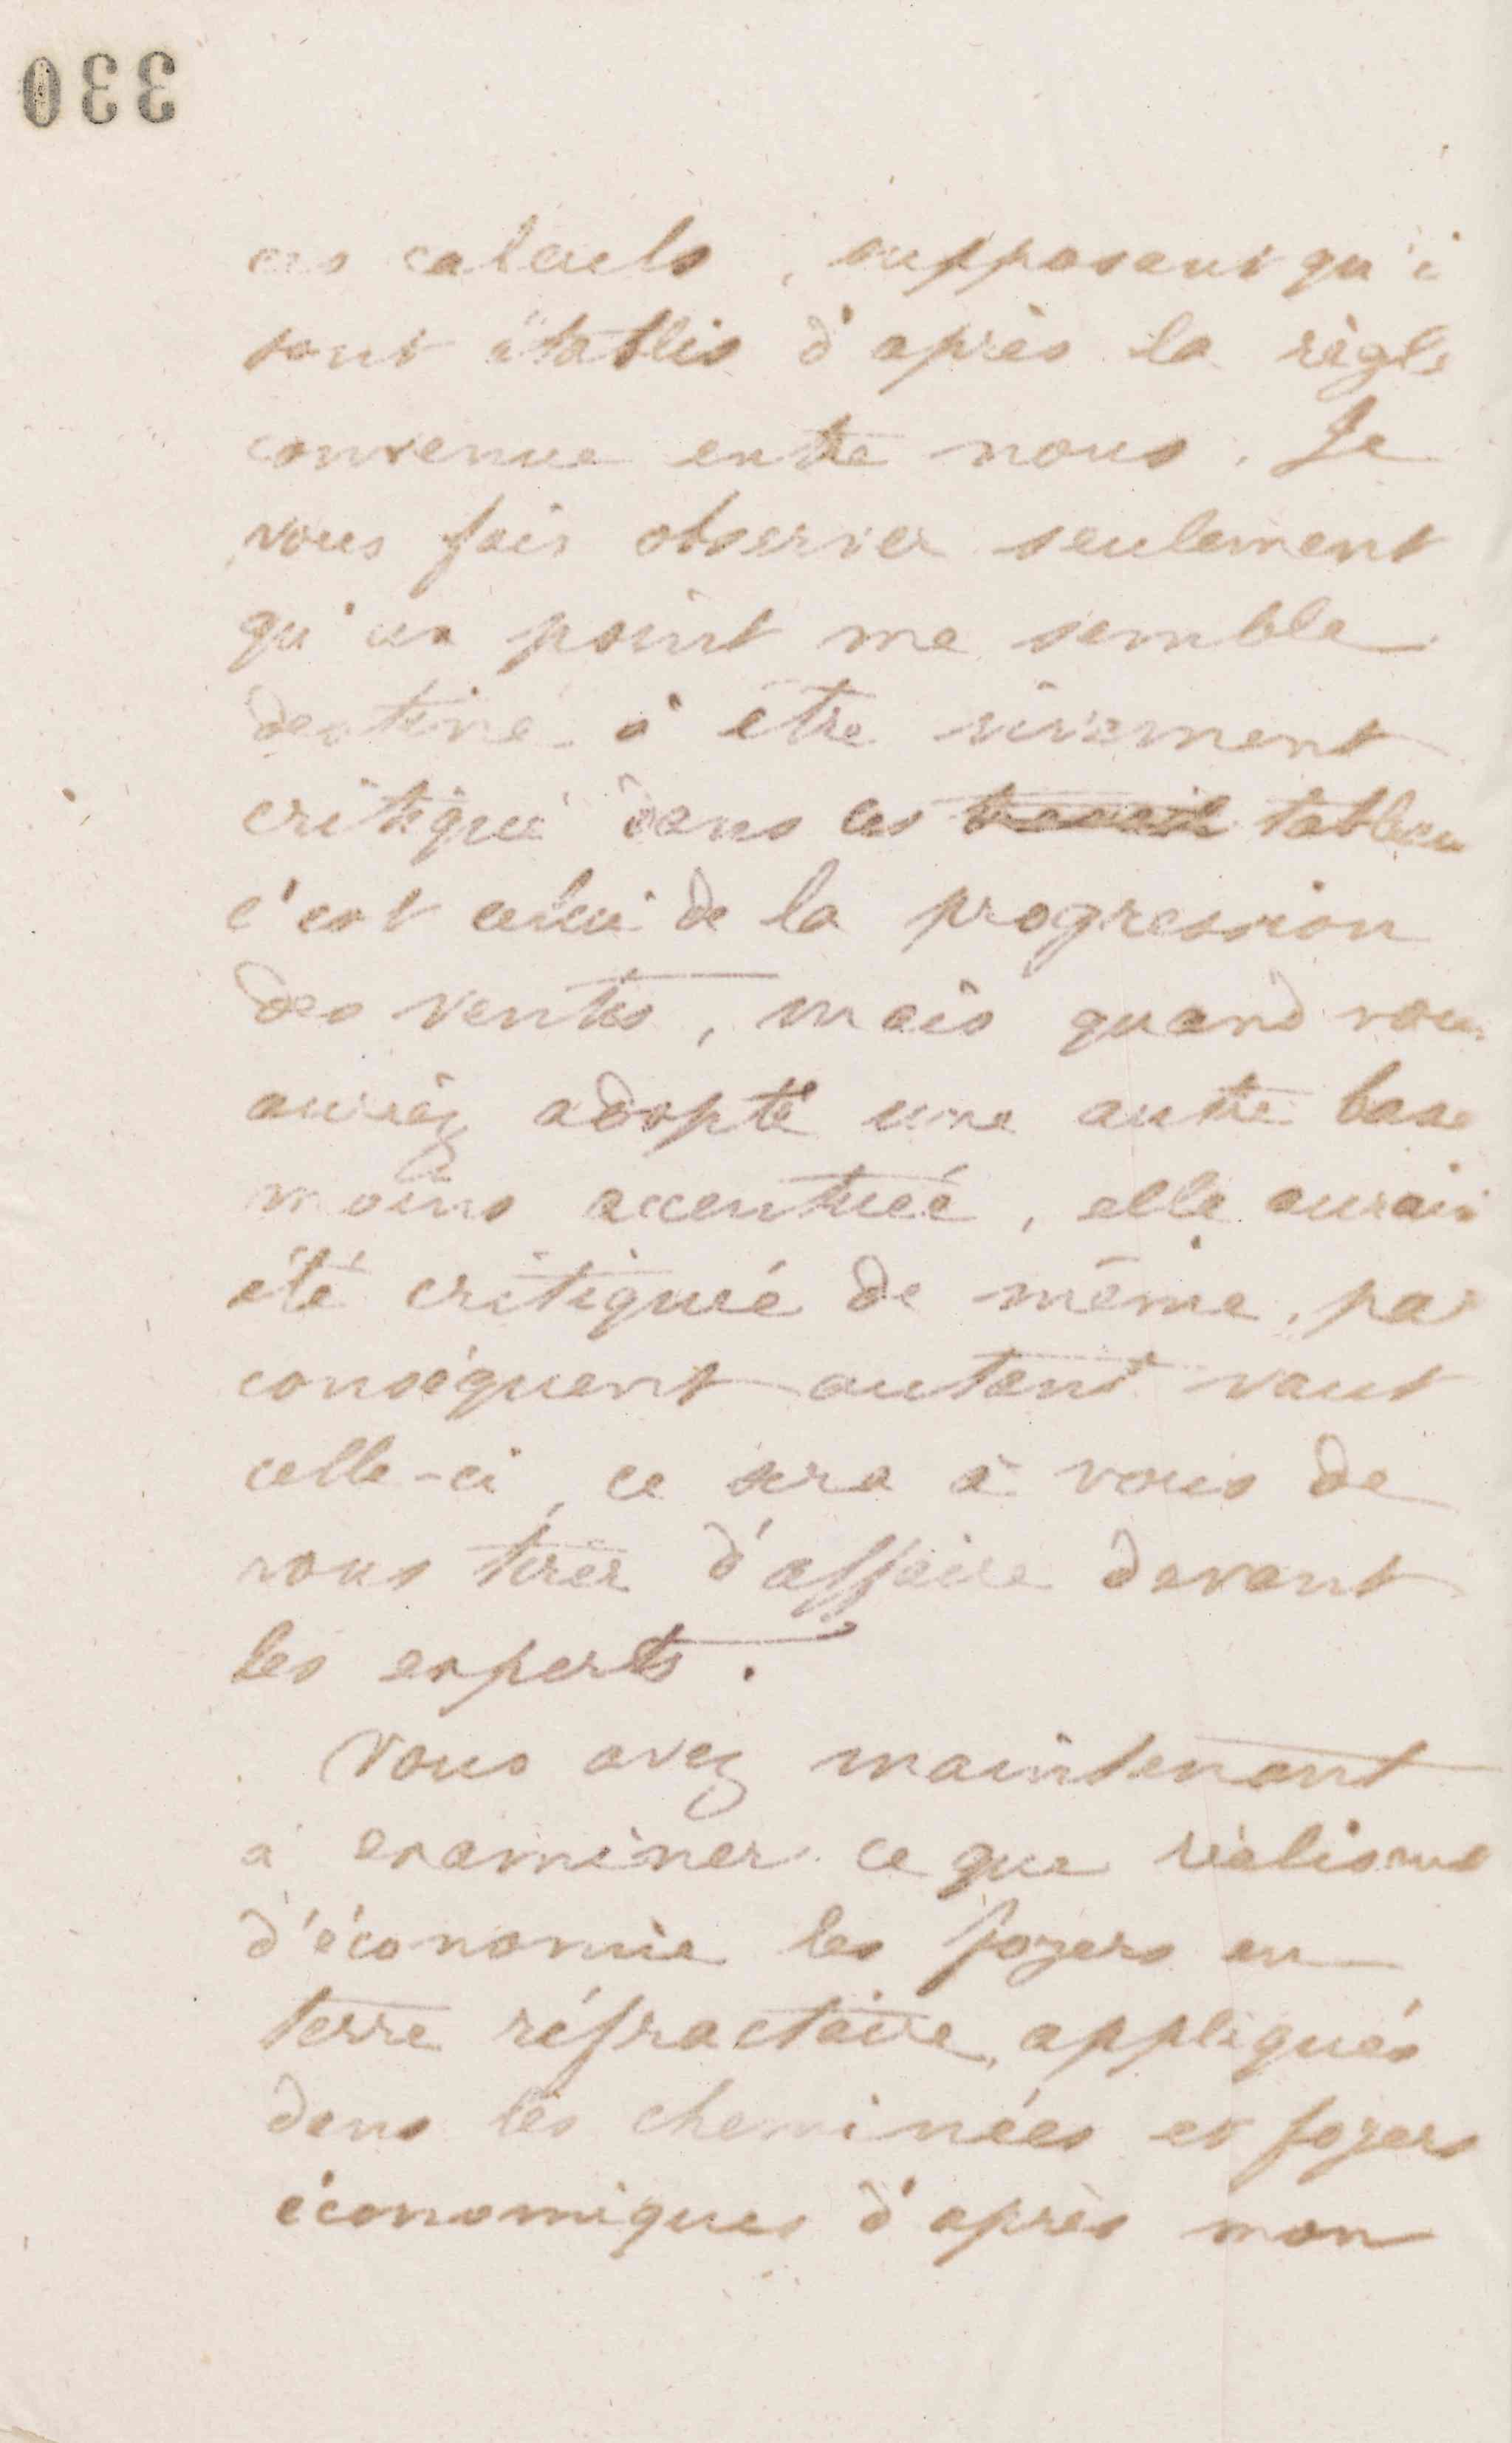 330
ces calculs, supposant qu'i
sont établis d'après la règle
convenue entre nous. Je
vous fais observer seulement
qu'un point me semble
destiné à être vivement
critiqué dans ces travail tableau
c'est celui de la progression
des ventes, mais quand vous
auriez adopté une autre base
moins accentuée, elle aurait
été critiquée de même, par
conséquent autant vaut
celle-ci, ce sera à vous de
vous tirer d'affaire devant
les experts.
Vous avez maintenant
à examiner ce que réalisent
d'économie les foyers en
terre réfractaire, appliqués
dans les cheminées et foyers
économiques d'après mon